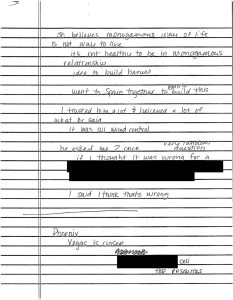 It believes monogamous way of life
is not way to live
its not healthy to be in monogamous
relationship
idea to build harem
went to Spain together to build this
I trusted him a lot & believed a lot of
what he said
It was all mind control
very random
he asked me 2 once question
if I thought it was wrong for a
I said I think thats wrong
Phoenix
Veggc is rinser
cell
the resources